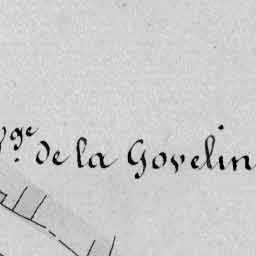 Vge de la Govelin